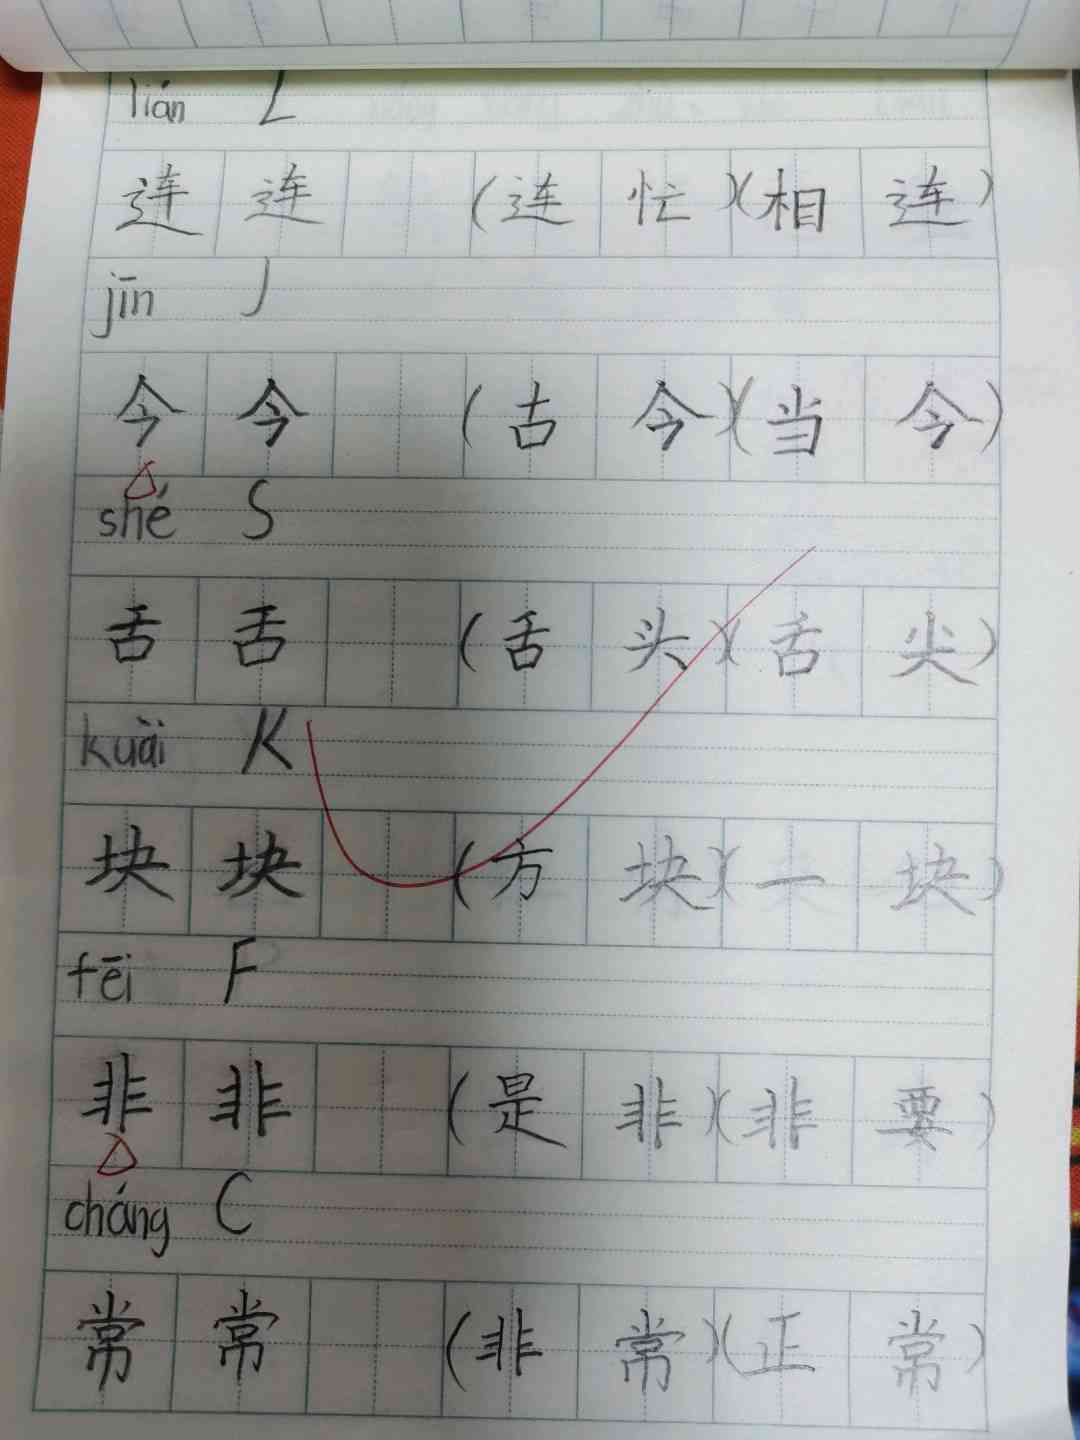 lián L
连 连 (连 忙)(相 连)
jīn J
今 今 (古 今)(当 今)
shé S
舌 舌 (舌 头)(舌 尖)
kuài K
块 块 (方 块)(一 块)
fēi F
非 非 (是 非)(非 要)
cháng C
常 常 (非 常)(正 常)